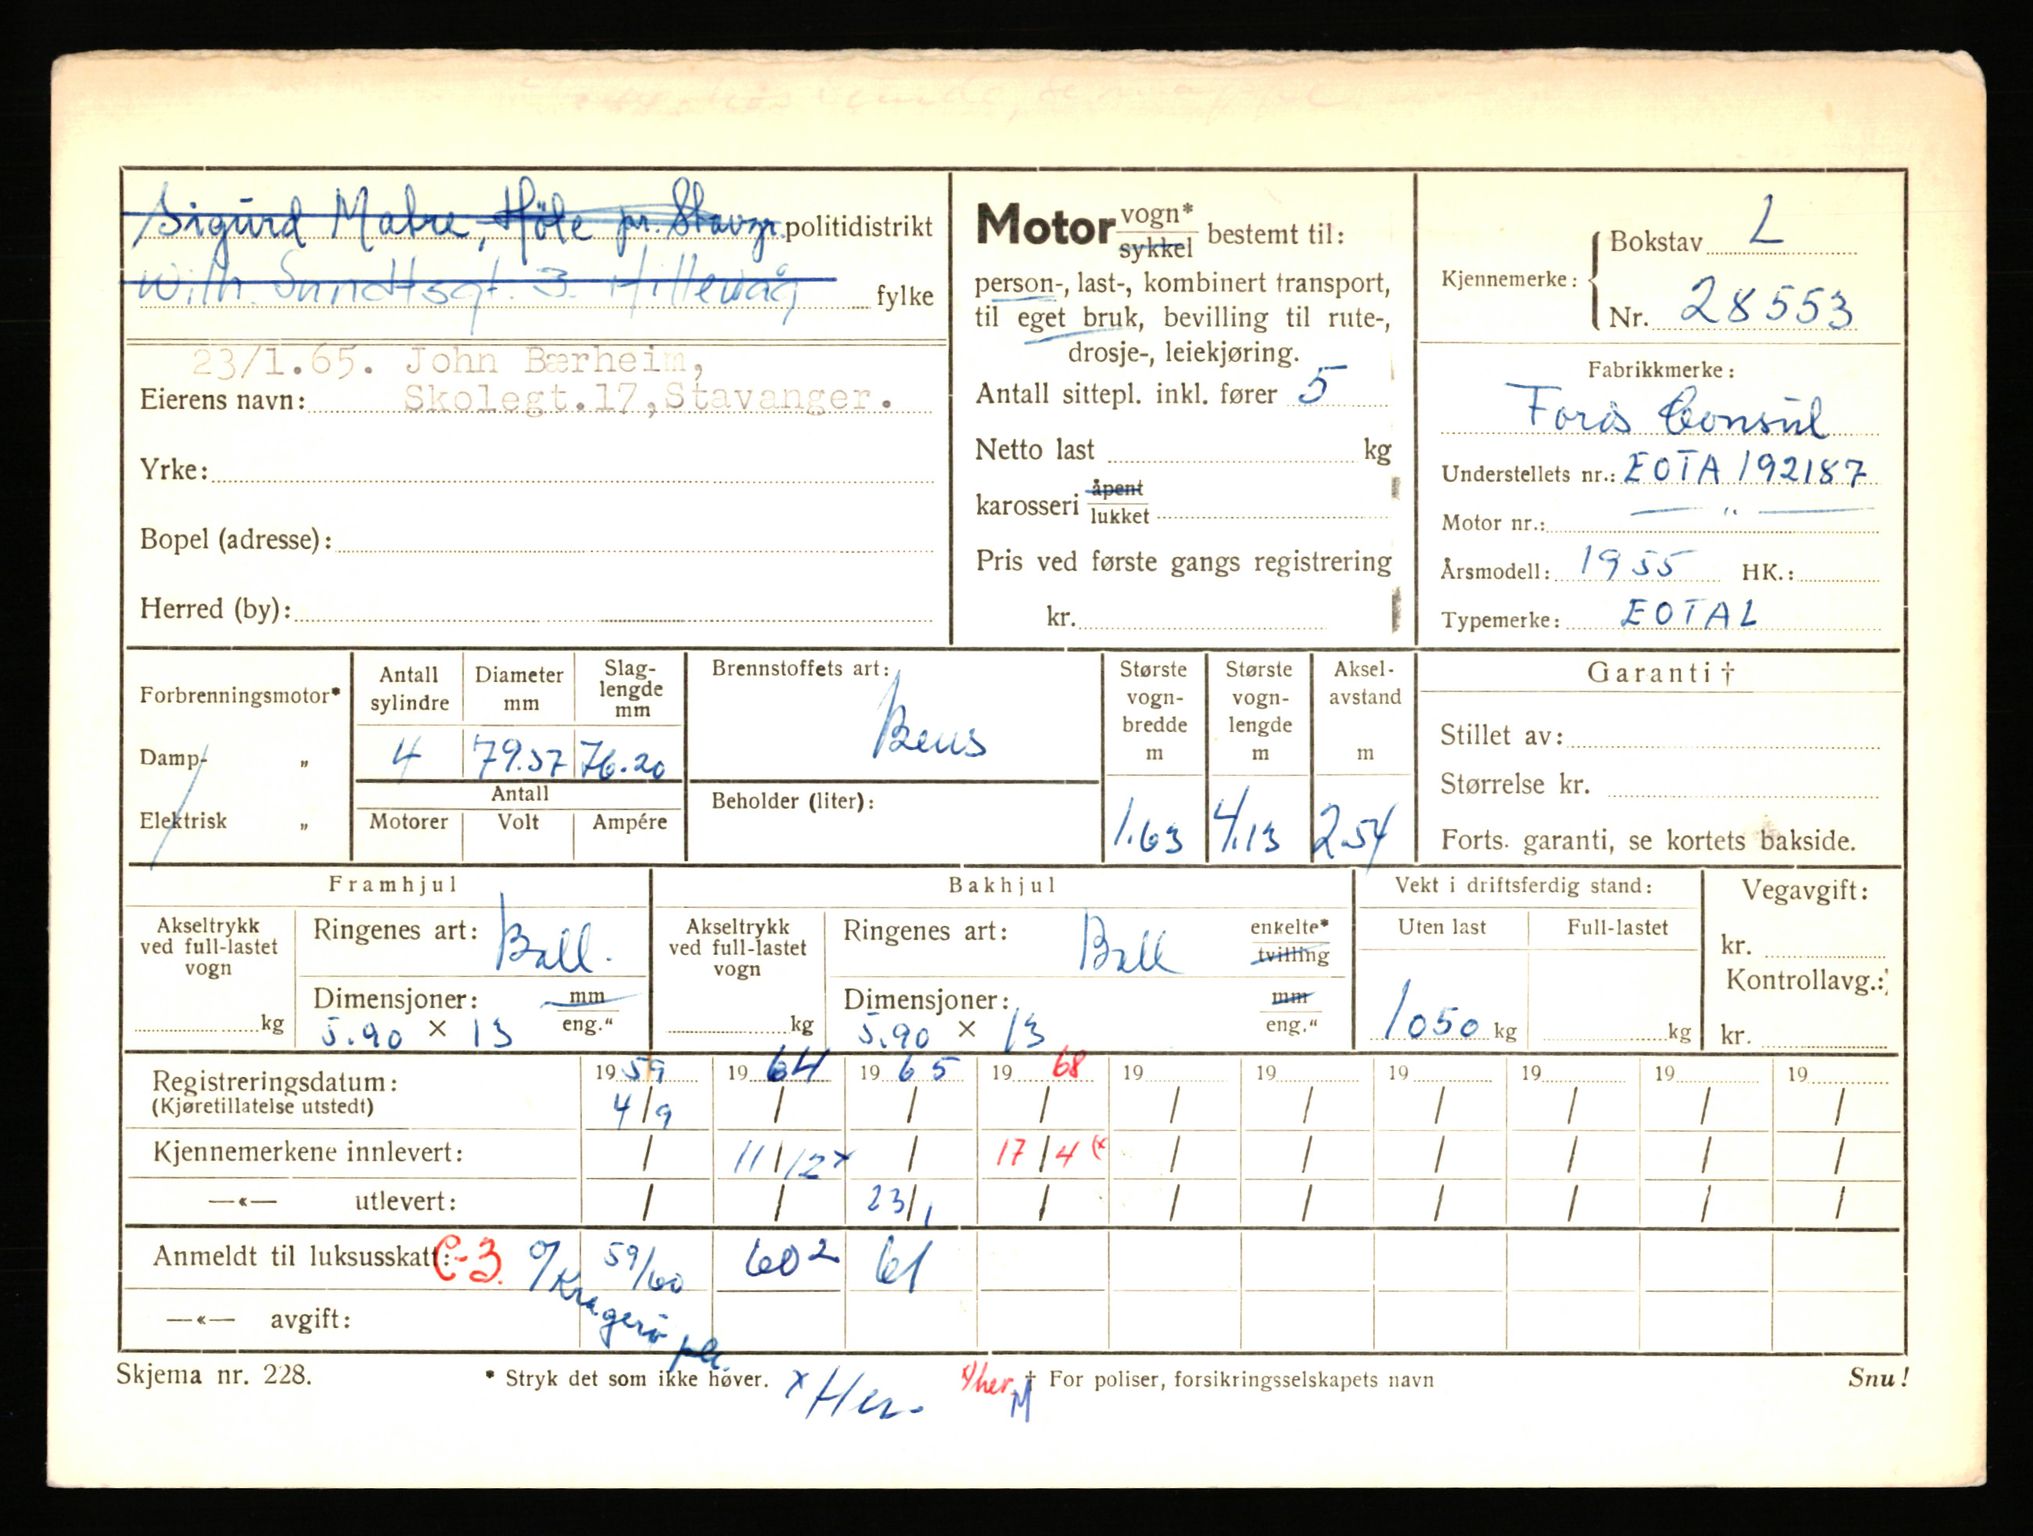 Sigurd Malre, Höle pr. Stavgr. politidistrikt
Wilh. Sundtsgt. 3. Hillevåg fylke
23/1.65. John Bærheim,
Eierens navn: Skolegt.17, Stavanger.
Yrke:
Bopel (adresse):
Herred (by):
Motor vogn* sykkel bestemt til:
person-, last-, kombinert transport,
til eget bruk, bevilling til rute-,
drosje-, leiekjøring.
Antall sittepl. inkl. fører 5
Netto last kg
karosseri åpent lukket
Pris ved første gangs registrering
kr.
Kjennemerke: Bokstav L
Nr. 28553
Fabrikkmerke:
Ford Consul
Understellets nr.: EOTA 192187
Motor nr.: — " —
Årsmodell: 1955 HK.:
Typemerke: EOTAL
Forbrenningsmotor*
Damp- „
Elektrisk „
Antall sylindre
Diameter mm
Slag-lengde mm
4 79.37 76.20
Antall
Motorer Volt Ampére
Brennstoffets art:
Bens
Beholder (liter):
Største vogn-bredde m
1.63
Største vogn-lengde m
4.13
Aksel-avstand m
2.54
Garanti †
Stillet av:
Størrelse kr.
Forts. garanti, se kortets bakside.
Framhjul
Akseltrykk ved full-lastet vogn
kg
Ringenes art: Ball.
Dimensjoner: mm
5.90 × 13 eng."
Bakhjul
Akseltrykk ved full-lastet vogn
kg
Ringenes art: Ball enkelte* tvilling
Dimensjoner: mm
5.90 × 13 eng."
Vekt i driftsferdig stand:
Uten last Full-lastet
1050 kg kg
Vegavgift:
kr.
Kontrollavg.:
kr.
Registreringsdatum: 19 59 19 64 19 65 19 68 19 19 19 19 19 19
(Kjøretillatelse utstedt) 4/9 / / / / / / / / /
Kjennemerkene innlevert: / 11/12 x / 17/4 (x / / / / / /
—«— utlevert: / / 23/1 / / / / / / /
Anmeldt til luksusskatt: C-3. 59/60 60 2 61
o/ Kragerø pk.
—«— avgift:
Skjema nr. 228.
* Stryk det som ikke høver.
x Her.
x/her. M
† For poliser, forsikringsselskapets navn
Snu!